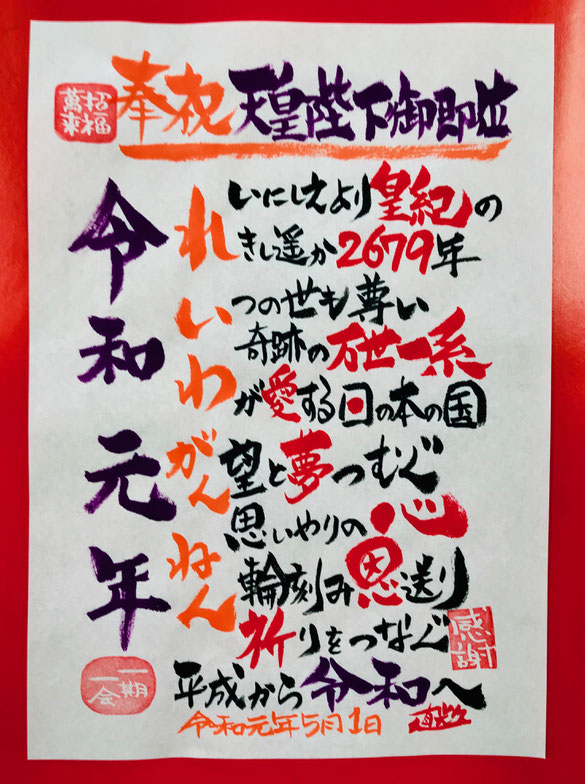 招福
萬来
奉祝 天皇陛下御即位
令和元年
いにしえより皇紀の
れきし遥か2679年
いつの世も尊い
奇跡の万世一系
わが愛する日の本の国
がん望と夢つむぐ
思いやりの心
ねん輪刻み恩送り
祈りをつなぐ
感謝
平成から令和へ
令和元年5月1日
一期
一会